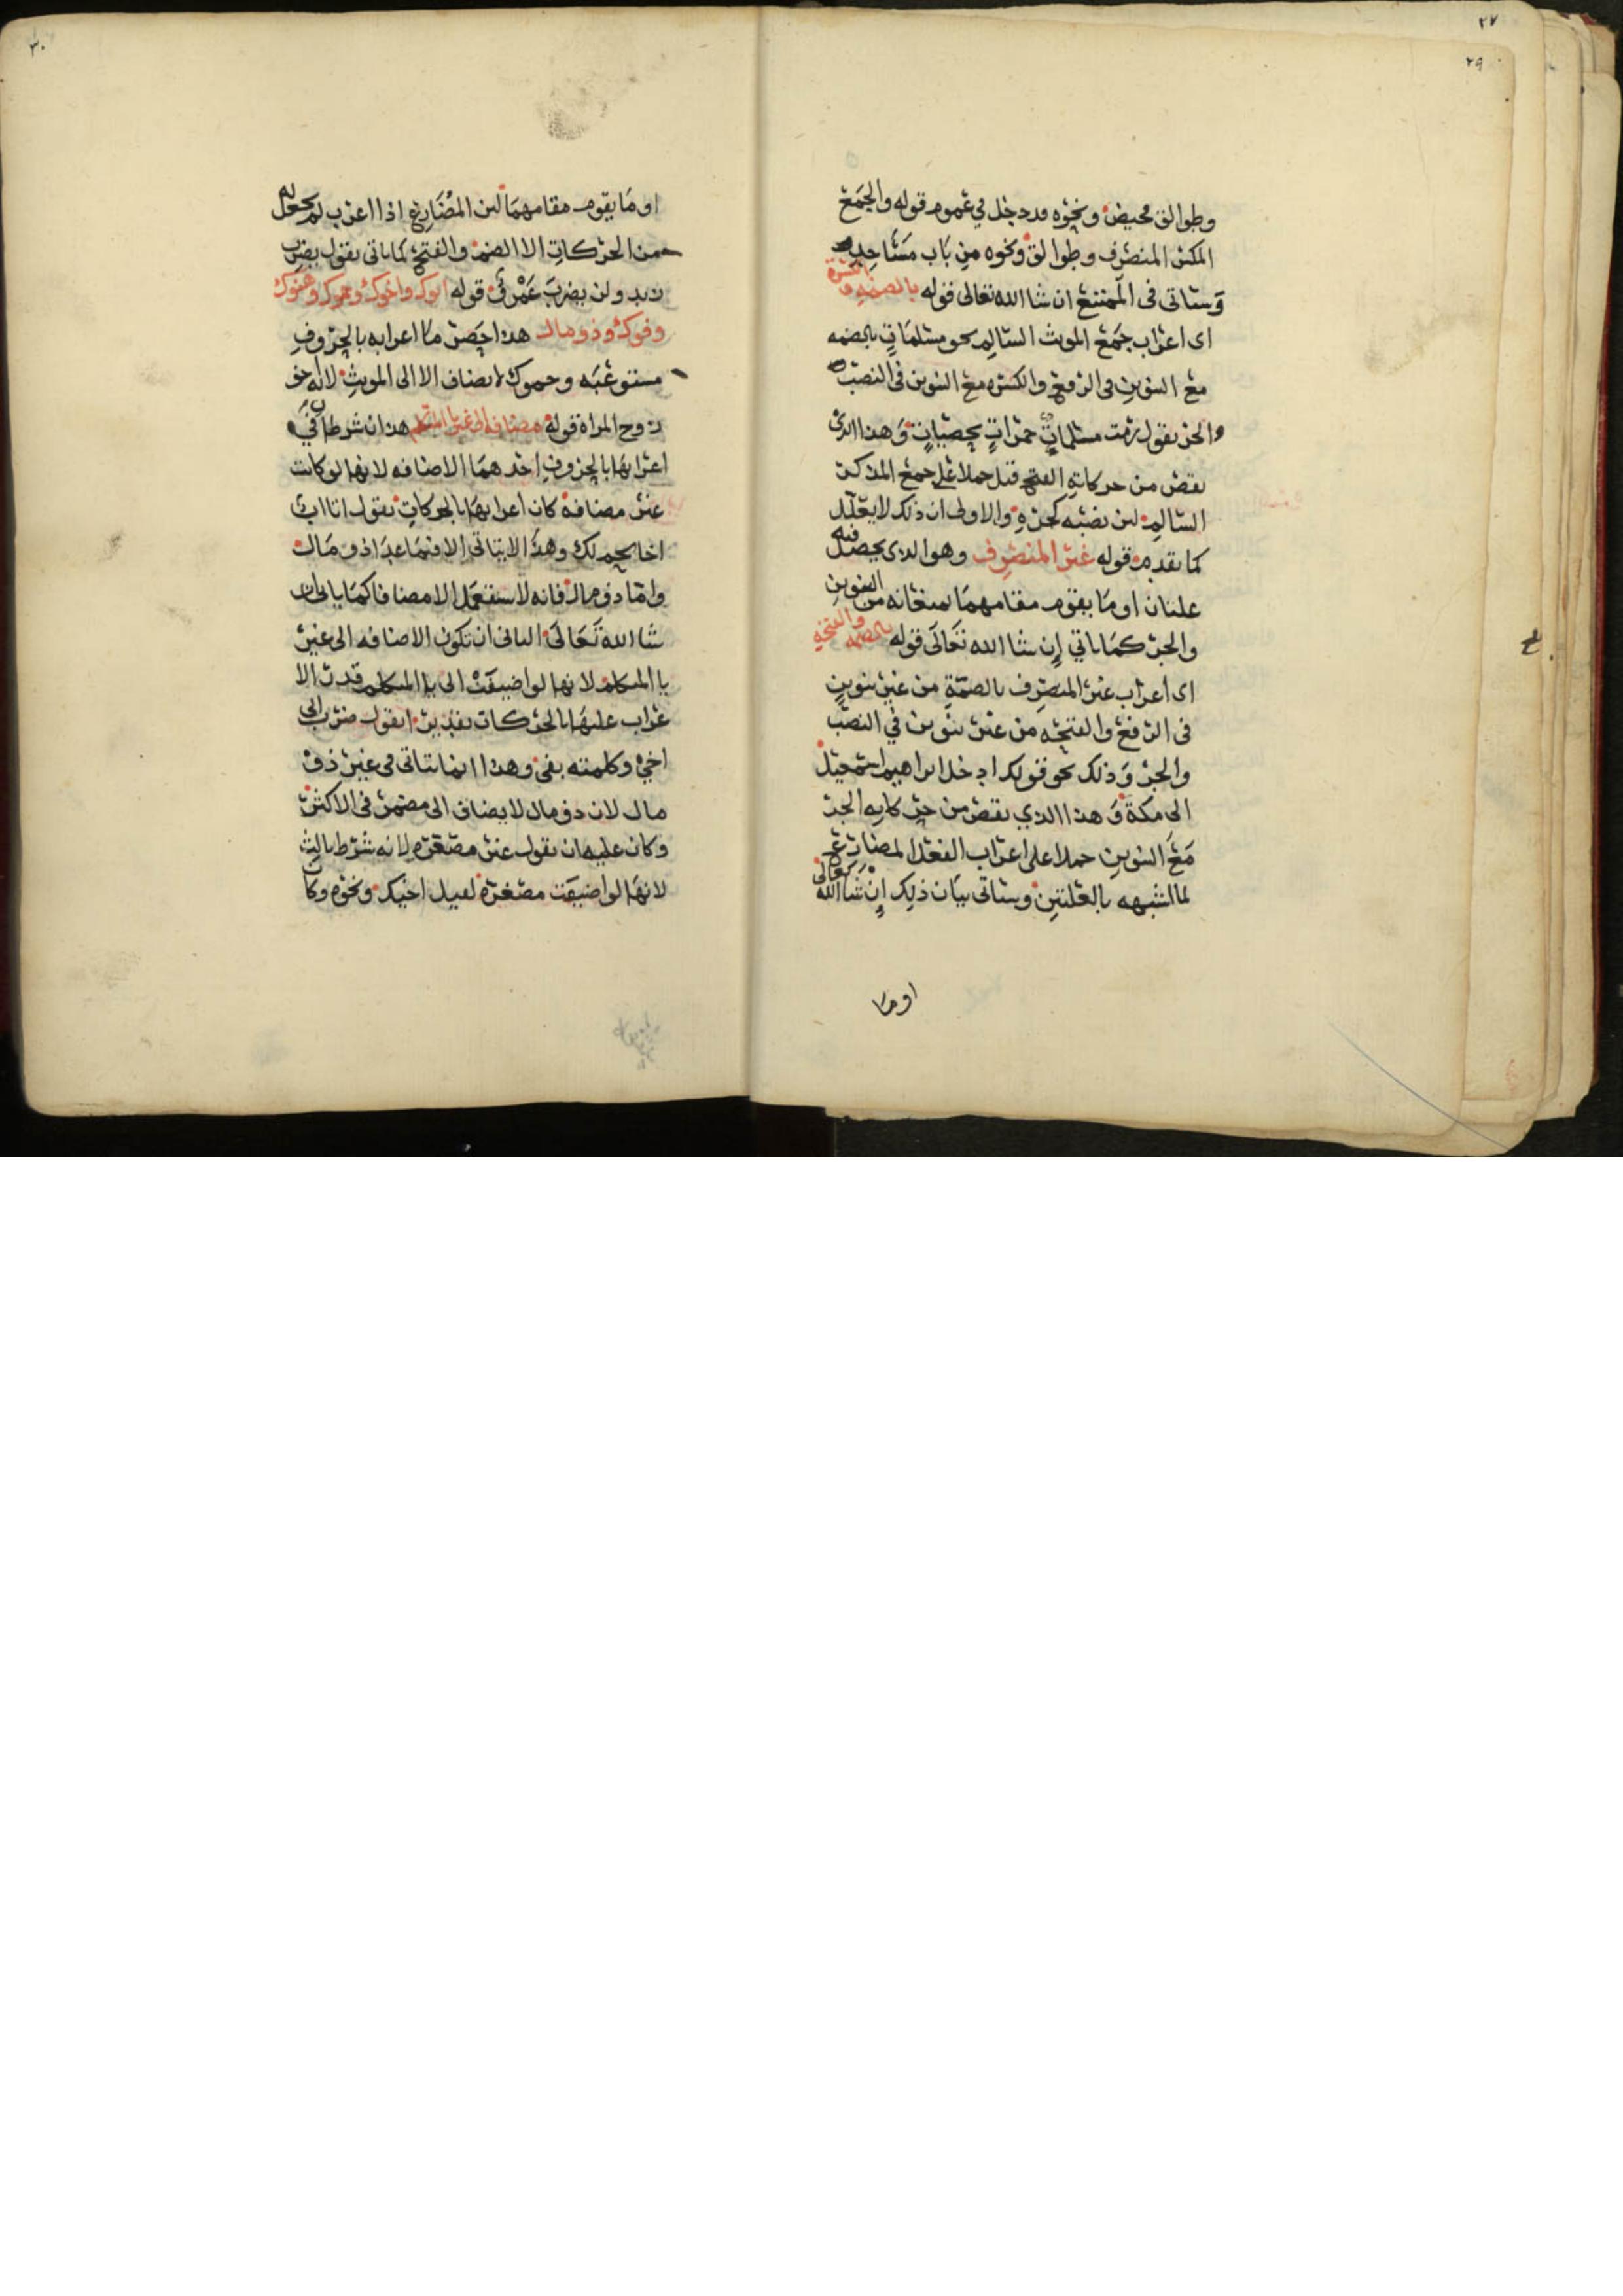 ٢٧
٢٩
وطوالق فحيض ونحوه قد دخل في عموم قوله والجمع
المكسر المنصرف وطوالق ونحوه من باب مساجد
وستاتي في الممتنع ان شا الله تعالى قوله بالضمه والكسرة
اى اعراب جمع المونث السالم نحو مسلمات بالضمه
مع التنوين في الرفع والكسره مع التنوين في النصب
والجر تقول رمت مسلمات جمرات بحصيات وهذا الذى
نقص من حركاته الفتح قيل حملا على جمع المذكر
السالم لان نصبه كجره والاولى ان ذلك لا يعلل
كما تقدم قوله غير المنصرف وهو الذى يحصل فيه
علتان او ما يقوم مقامهما يمنعانه من التنوين
والجر كما ياتي إن شا الله تعالى قوله بالضمه والفتحه
اى اعراب غير المنصرف بالضمة من غير تنوين
في الرفع والفتحه من غير تنوين في النصب
والجر وذلك نحو قولك ادخل ابراهيم اسمعيل
الى مكة وهذا الذي نقص من حركاته الجر
مع التنوين حملا على اعراب الفعل المضارع
لما اشبهه بالعلتين وستاتى بيان ذلك إن شا الله تعالى
او ما
٣٠
او ما يقوم مقامهما لان المضارع اذا اعرب لم يجعل له
من الحركات الا الضم والفتح كما ياتى تقول يضرب
زيد ولن يضرب عمرو قوله ابوك واخوك وحموك وهنوك
وفوك وذو مال هذا حصر ما اعرابه بالحروف
مستوعبه وحموك لا يضاف الا الى المونث لانه اخو
زوج المراة قوله مضافه الى غير يا المتكلم هذان شرطان في
اعرابها بالحروف احدهما الاضافه لانها لو كانت
غير مضافه كان اعرابها بالحركات تقول انا اب
اخا بحم لك وهذا لا يتاتى الا فيما عدا ذو مال
واما ذو مال فانه لا يستعمل الا مضافا كما ياتى ان
شا الله تعالى الثانى ان تكون الاضافه الى غير
يا المتكلم لانها لو اضيفت الى يا المتكلم قدر الا
عراب عليها بالحركات تقديرا تقول ضرب ابى
اخي وكلمته بفي وهذا انما يتاتى في غير ذو
مال لان ذو مال لا يضاف الى مضمر في الاكثر
وكان عليه ان يقول غير مصغره لانه شرط ثالث
لانها لو اضيفت مصغرة لقيل اخيك ونحوه وكان